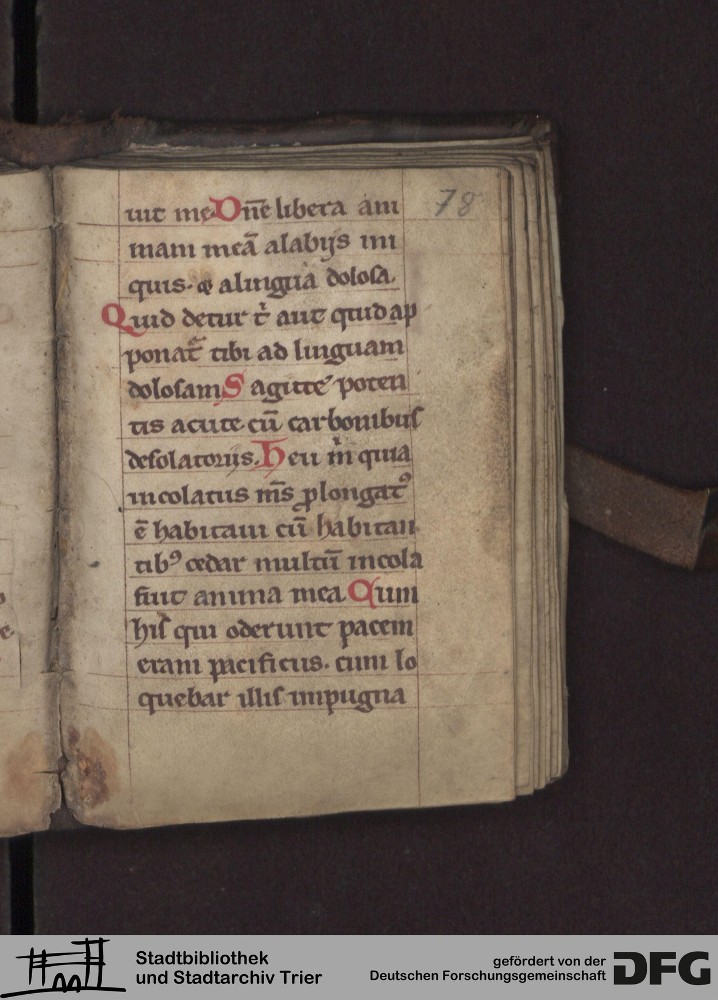 uit me Dn̄e libera ani
mam meā a labijs ini
quis. ⁊ a lingua dolosa.
Quid detur tⁱ aut quid ap
ponat᷑ tibi ad linguam
dolosam Sagitte poten
tis acute cū carbonibus
desolatorijs. Heu mⁱ quia
incolatus m̄s ꝓlongatꝰ
ē habitaui cū habitan
tibꝰ cedar multū incola
fuit anima mea Cum
his qui oderunt pacem
eram pacificus. cum lo
quebar illis inpugna
78
Stadtbibliothek
und Stadtarchiv Trier
gefördert von der
Deutschen Forschungsgemeinschaft
DFG